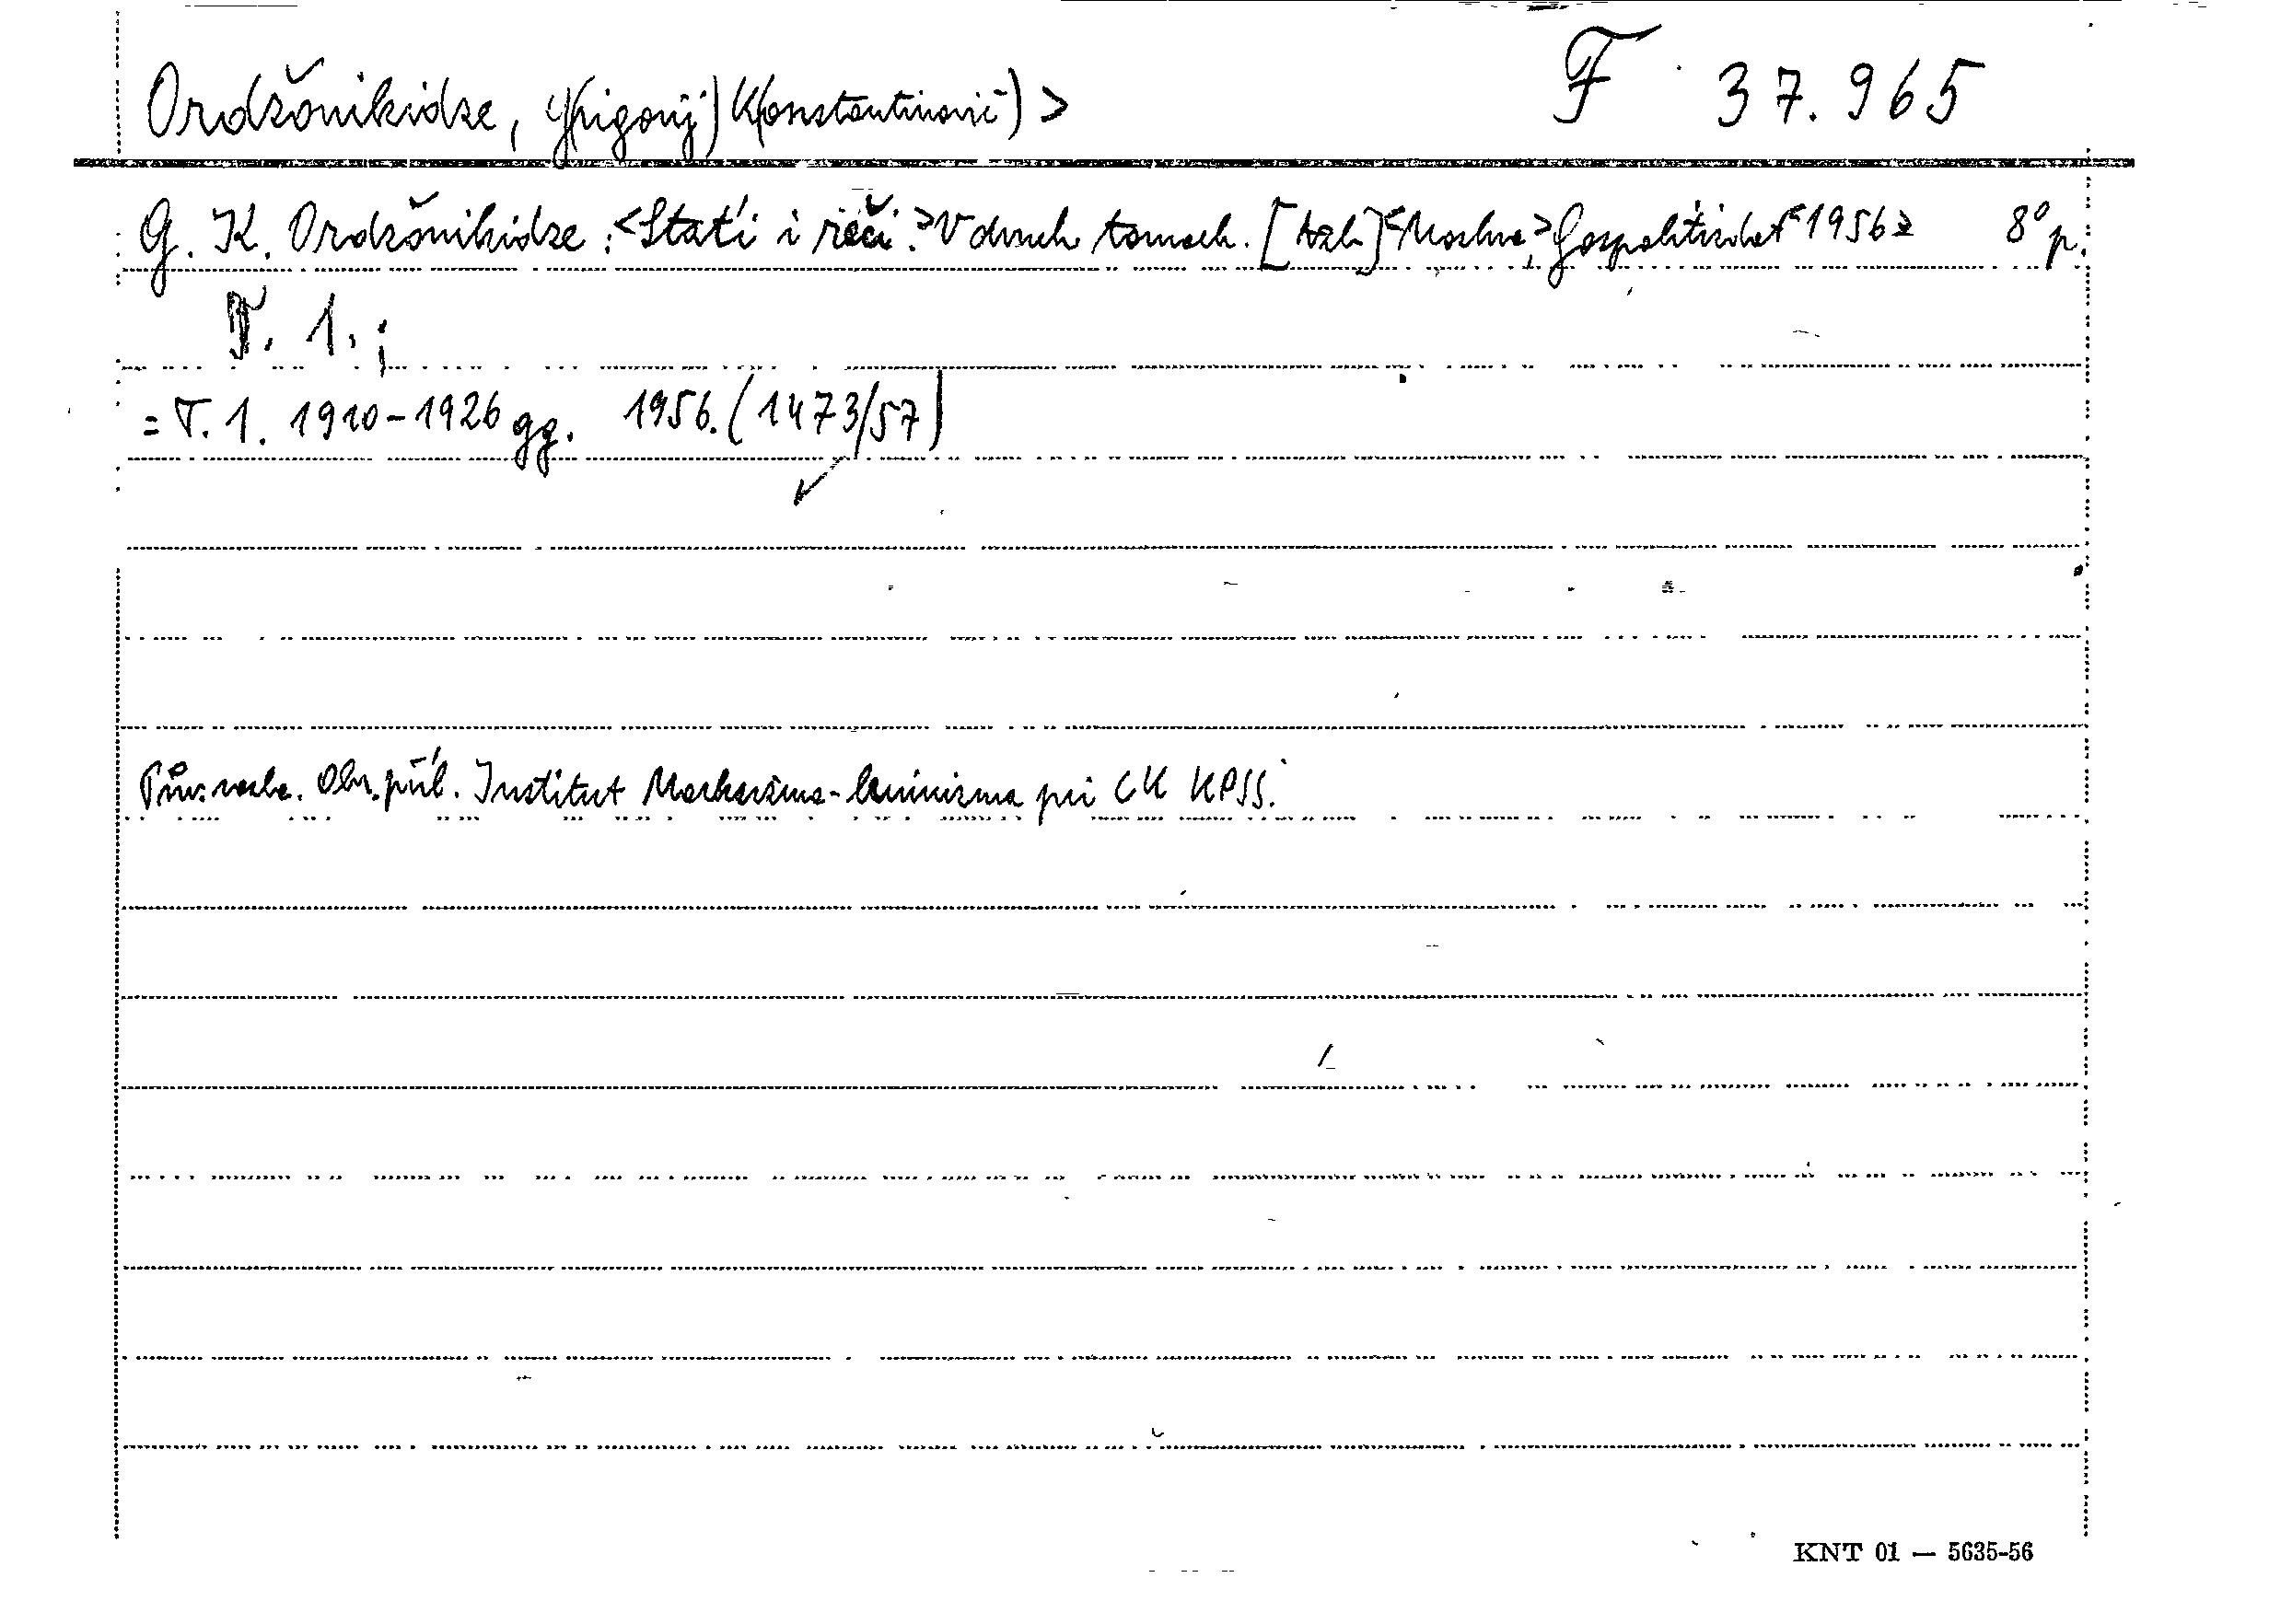 Ordžonikidze, G(rigorij) K(onstantinovič) > F 37.965
G. K. Ordžonikidze : <Staťi i rěči.> V dvuch tomach. [Azb.] <Moskva,> Gospolitizdat <1956> 8° p.
T. 1. ;
= T. 1. 1910-1926 gg. 1956. (1473/57)
Pův. vazba. Obr. příl. Institut Marksizma-leninizma pri CK KPSS.
KNT 01 — 5635-56